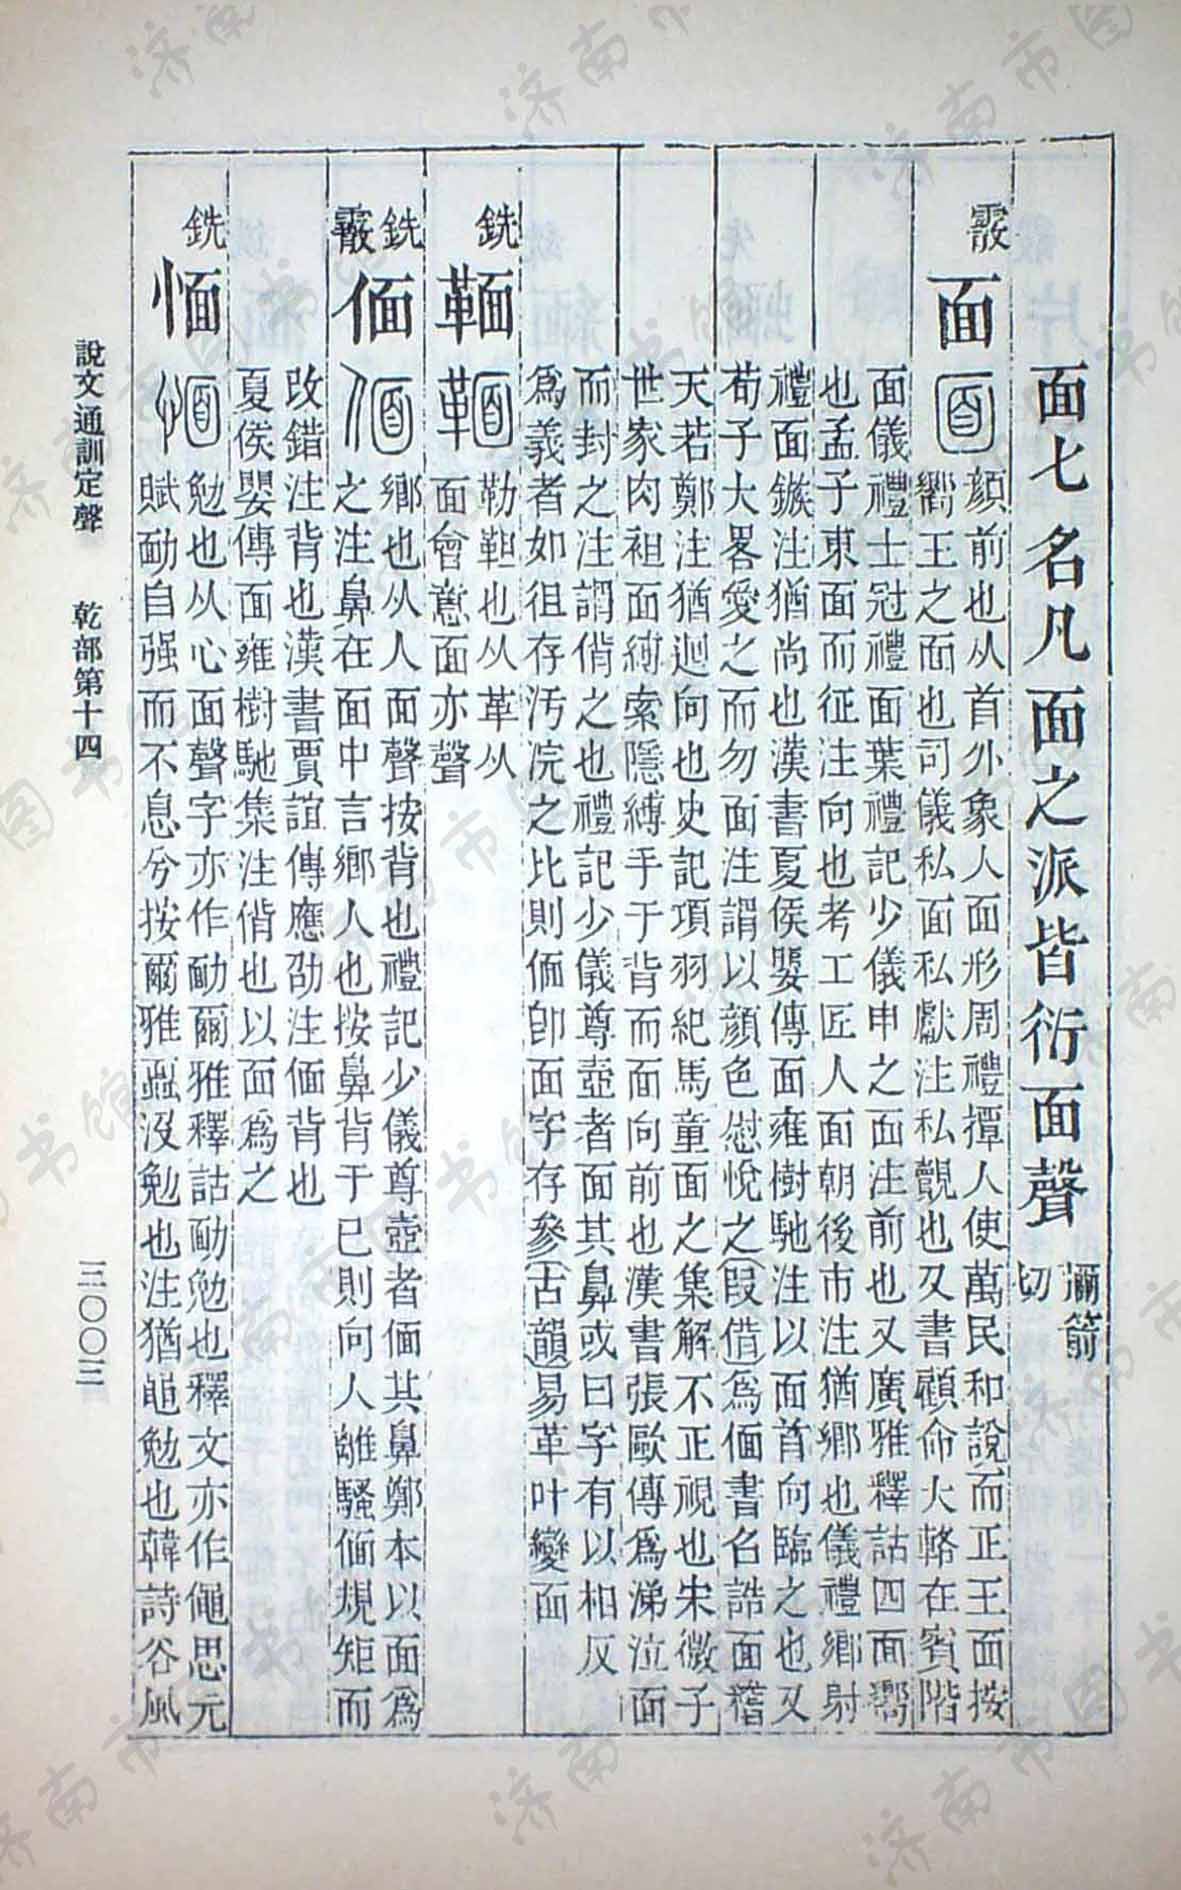 面七名凡面之派皆衍面聲 彌箭切
霰
面
顔前也从首外象人面形周禮撢人使萬民和說而正王面按
嚮王之面也司儀私面私獻注私覿也又書顧命大輅在賓階
面儀禮士冠禮面葉禮記少儀申之面注前也又廣雅釋詁四面嚮
也孟子東面而征注向也考工匠人面朝後市注猶鄉也儀禮鄉射
禮面鏃注猶尚也漢書夏侯嬰傳面雍樹馳注以面首向臨之也又
荀子大畧愛之而勿面注謂以顔色慰悅之(叚借)爲偭書召誥面稽
天若鄭注猶迴向也史記項羽紀馬童面之集解不正視也宋微子
世家肉袒面縛索隱縛手于背而面向前也漢書張歐傳爲涕泣面
而封之注謂偝之也禮記少儀尊壺者面其鼻或曰字有以相反
爲義者如徂存汚浣之比則偭卽面字存參(古韻)易革叶變面
銑
䩏
勒靼也从革从
面會意面亦聲
銑
霰
偭
鄉也从人面聲按背也禮記少儀尊壺者偭其鼻鄭本以面爲
之注鼻在面中言鄉人也按鼻背于已則向人離騷偭規矩而
改錯注背也漢書賈誼傳應劭注偭背也
夏侯嬰傳面雍樹馳集注偝也以面爲之
銑
愐
勉也从心面聲字亦作勔爾雅釋詁勔勉也釋文亦作僶思元
賦勔自强而不息兮按爾雅蠠沒勉也注猶黽勉也韓詩谷風
說文通訓定聲 乾部第十四 三〇〇三
济南市图书馆